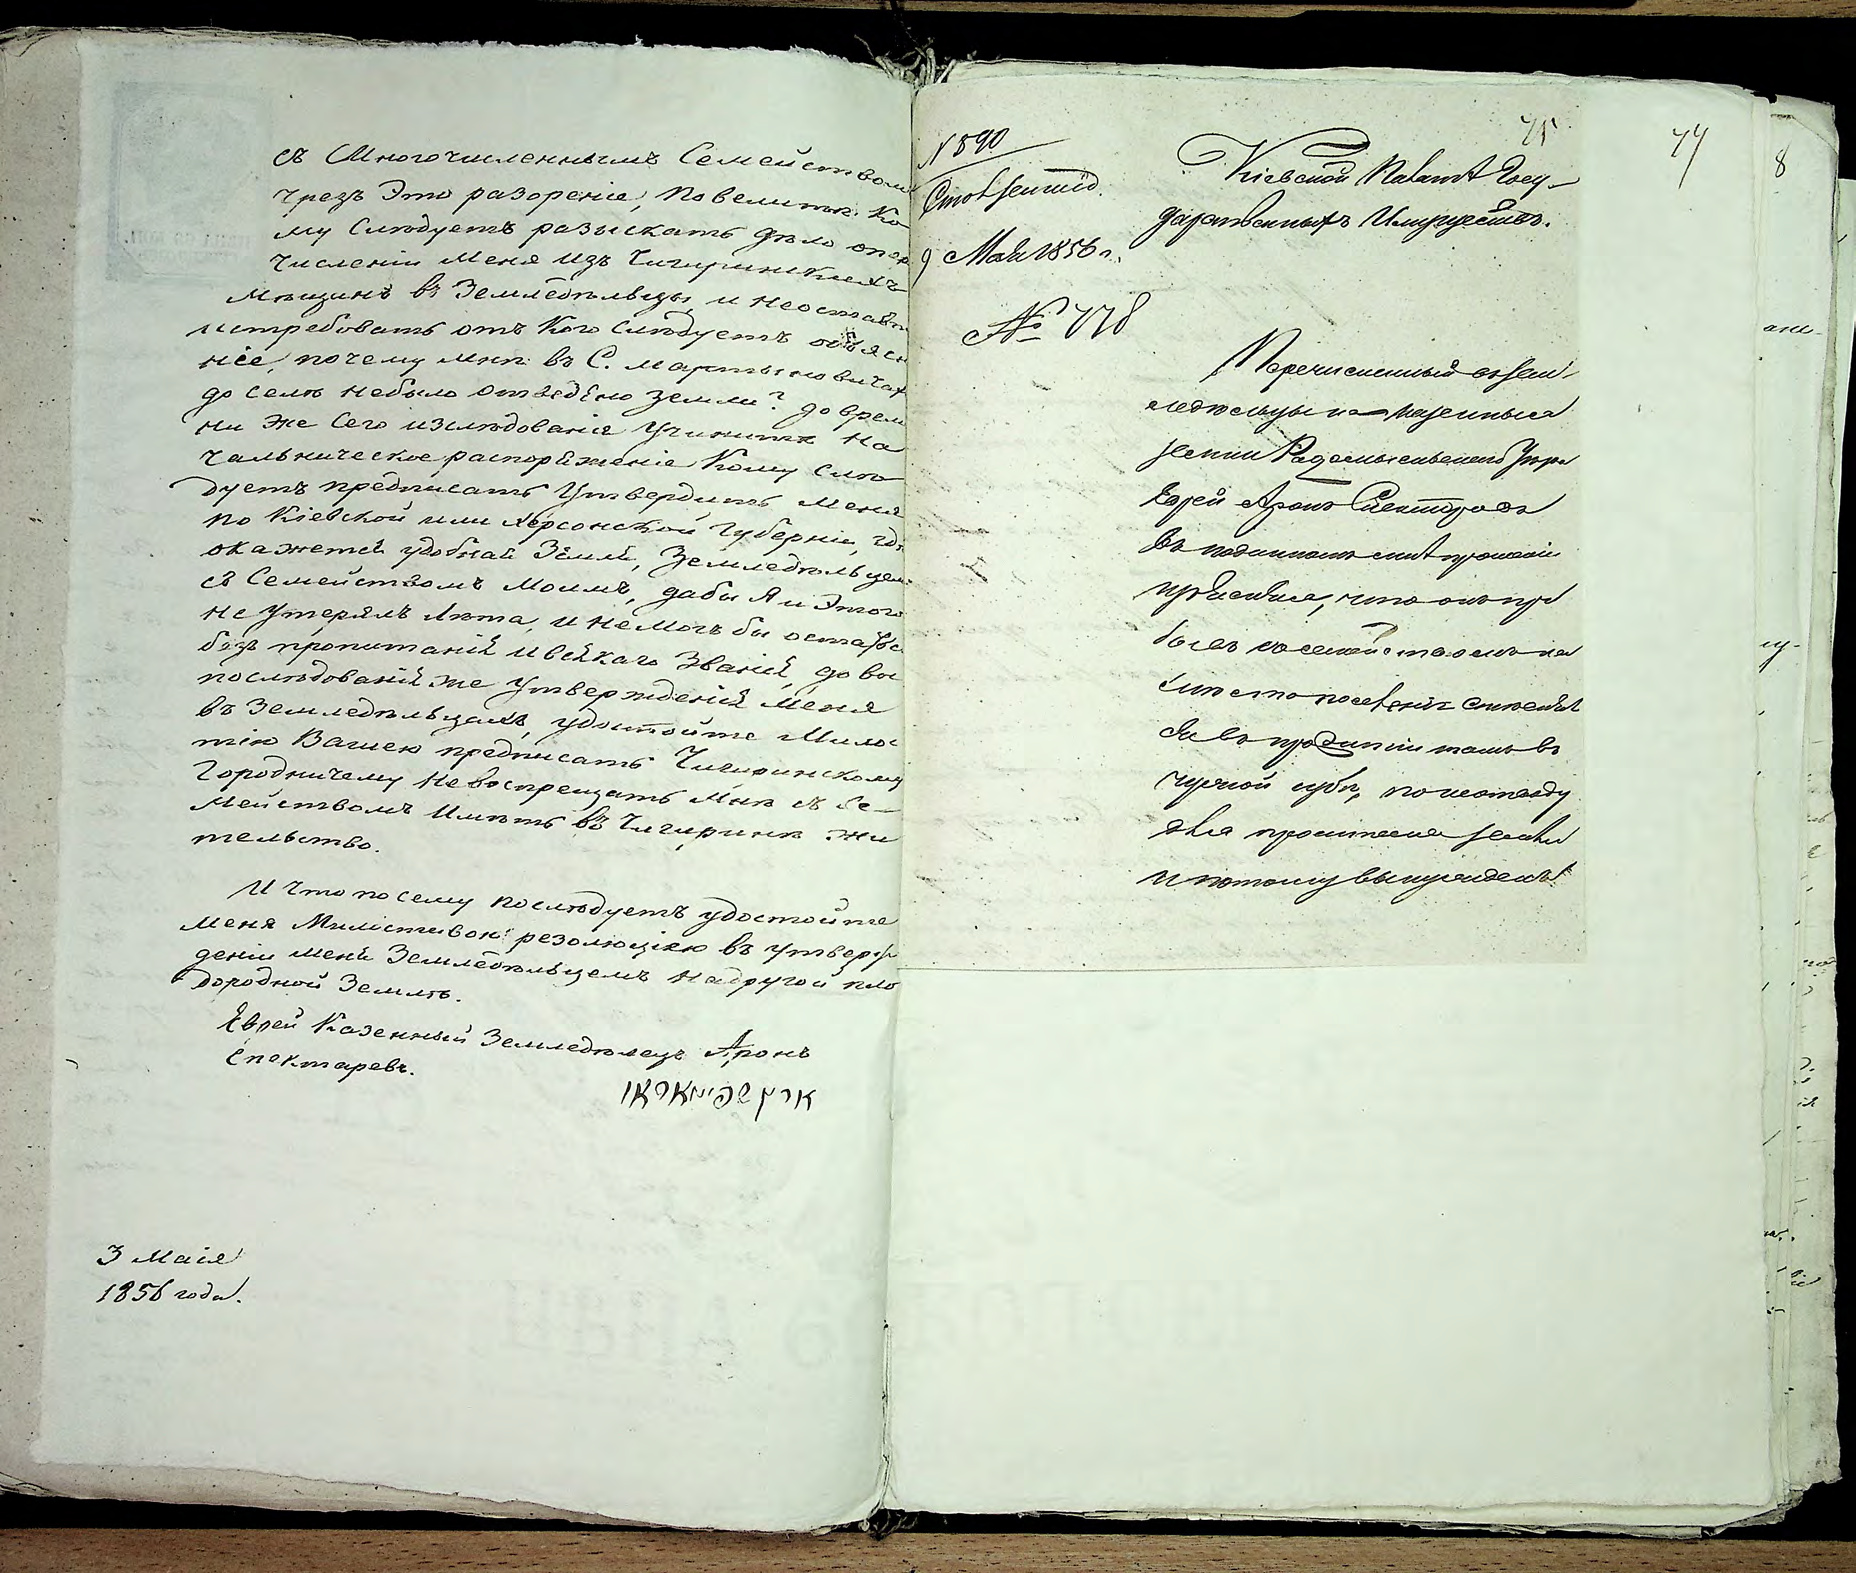 съ Многочисленнымъ Семейством
чрезъ Это разореніе, Повелите Ко
му Слѣдуетъ разыскать дѣло опер
численіи Меня изъ Чигиринскихъ
Мѣщанъ въ Земледѣльцы, и неостав
истребовать отъ Кого слѣдуетъ объясн
ніе, почему мнѣ въ С. Мартыновичах
до селѣ небыло отведено земли? до врем
ни Же Сего изслѣдованія Учинить На
чальническое распоряженіе Кому слѣ
дуетъ предписать Утвердить Меня
по Кіевской или Херсонской Губерніи, гдѣ
окажется удобная Земля, Земледѣльцем
съ Семействомъ Моимъ, дабы Я и Этого
не Утерялъ Лѣта, и немогъ бы остаться
безъ пропитанія и всякаго Званія, до вос
послѣдованія же Утвержденія Меня
въ Земледѣльцахъ, удостойте Милос
тію Вашею предписать Чигиринскому
Городничему Невоспрещать Мнѣ съ Се-
мействомъ Имѣть въ Чигиринѣ жи
тельство.
И Что по сему послѣдуетъ удостойте
Меня Милостивою резолюціею въ утверж
деніи меня Земледѣльцемъ На другой пло
дородной Землѣ.
Еврей Казенный Земледѣлецъ Аронъ
Спектаревъ.
3 Маія
1856 года.
75
77
8
N 890
9 Мая 1856 г.
№ 778
Кіевской Палатѣ Госу-
дарственныхъ Имуществъ.
Перечисленный въ зем-
ледѣльцы на казенныя
земли Радомысльскаго Уѣзда
Еврей Аронъ Спекторовъ
въ поданномъ мнѣ прошеніи
изъяснилъ, что онъ при
былъ съ семействомъ на
мѣсто поселенія
пропитаніи тамъ въ
губ, по неотводу
для земли
и потому вынужденъ